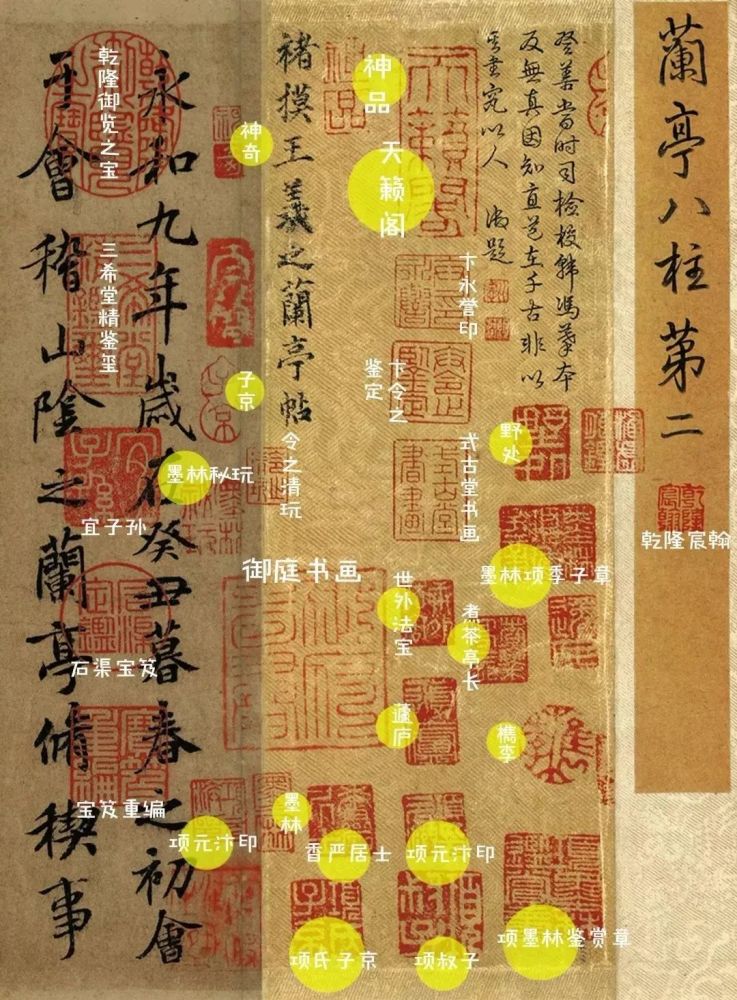 蘭亭八柱第二
乾隆宸翰
登善當时司檢校韩馮摹本
反無真因知直道在千古非以
其書究以人 御題
褚摸王羲之蘭亭帖
永和九年歲在癸丑暮春之初會
于會稽山陰之蘭亭脩稧事
神品
天籁阁
卞永誉印
卞令之
鉴定
野处
式古堂书画
令之清玩
墨林项季子章
世外法宝
煮茶亭长
蘧庐
檇李
墨林
香严居士
项元汴印
项墨林鉴赏章
项叔子
项氏子京
御庭书画
神奇
子京
墨林秘玩
项元汴印
乾隆御览之宝
三希堂精鉴玺
宜子孙
石渠宝笈
宝笈重编